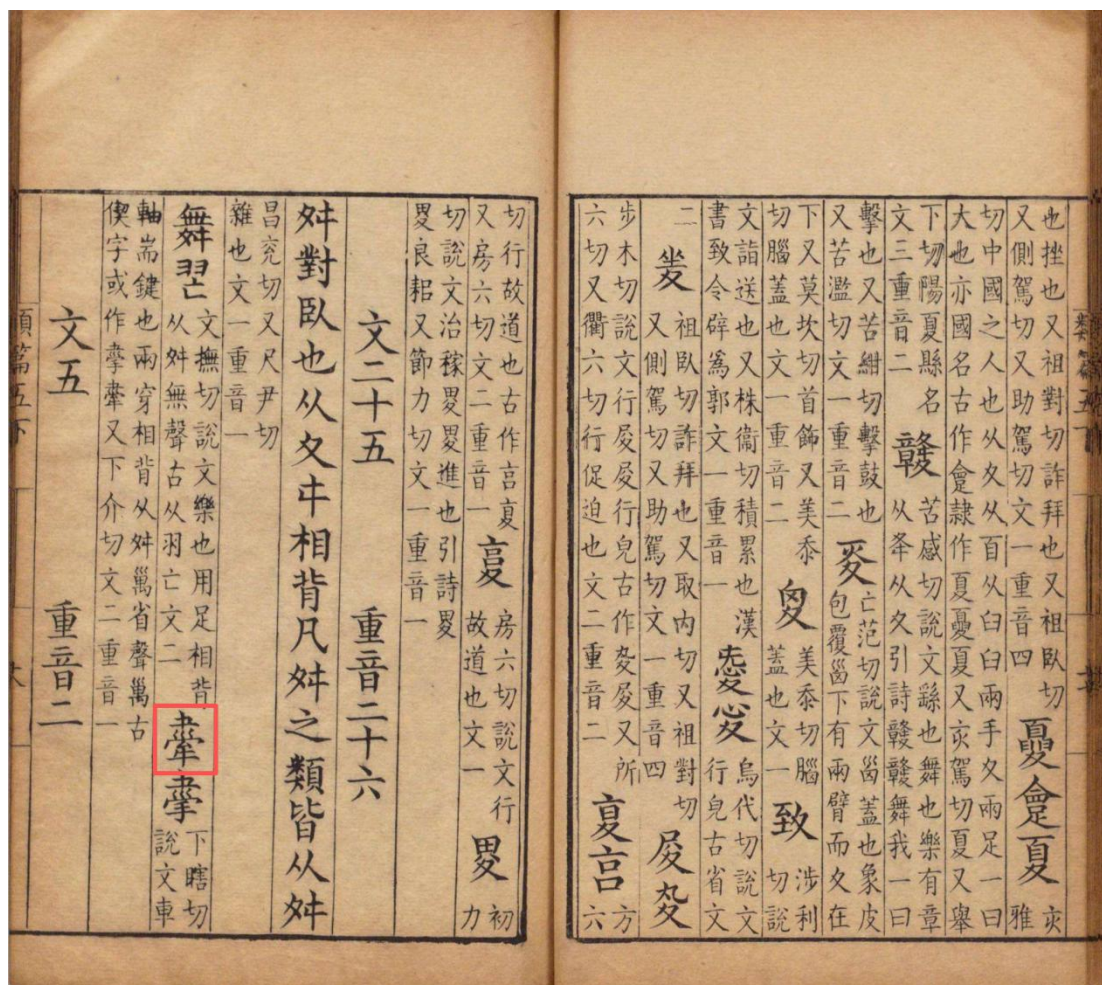 也挫也又祖對切詐拜也又祖臥切
又側駕切又助駕切文一重音四
夓㑹夏
亥
雅
切中國之人也从夊从百从臼臼兩手夊兩足一曰
大也亦國名古作㑹隸作夏夓夏又亥駕切夏又舉
下切陽夏縣名
文三重音二
贛
苦感切說文繇也舞也樂有章
从夅从夊引詩贛贛舞我一曰
擊也又苦紺切擊鼓也
又苦濫切文一重音二
亡范切說文匘蓋也象皮
包覆匘下有兩臂而夊在
下又莫坎切首飾又美忝
切腦蓋也文一重音二
美忝切腦
蓋也文一
致
陟利
切說
文詣送也又株衞切積累也漢
書致令辟爲郭文一重音一
烏代切說文
行皃古省文
二
夎
祖臥切詐拜也又取内切又祖對切
又側駕切又助駕切文一重音四
步木切說文行行皃古作又所
六切又衢六切行促迫也文二重音二
方
六
切行故道也古作
又房六切文二重音一
房六切說文行
故道也文一
畟
初
力
切說文治稼畟畟進也引詩畟
畟良耜又節力切文一重音一
文二十五 重音二十六
舛對臥也从夊㐄相背凡舛之類皆从舛
昌兖切又尺尹切
雜也文一重音一
舞𦏶
文撫切說文樂也用足相背
从舛無聲古从羽亡文二
下瞎切
說文車
軸耑鍵也兩穿相背从舛萬省聲萬古
偰字或作又下介切文二重音一
文五 重音二
類篇五下